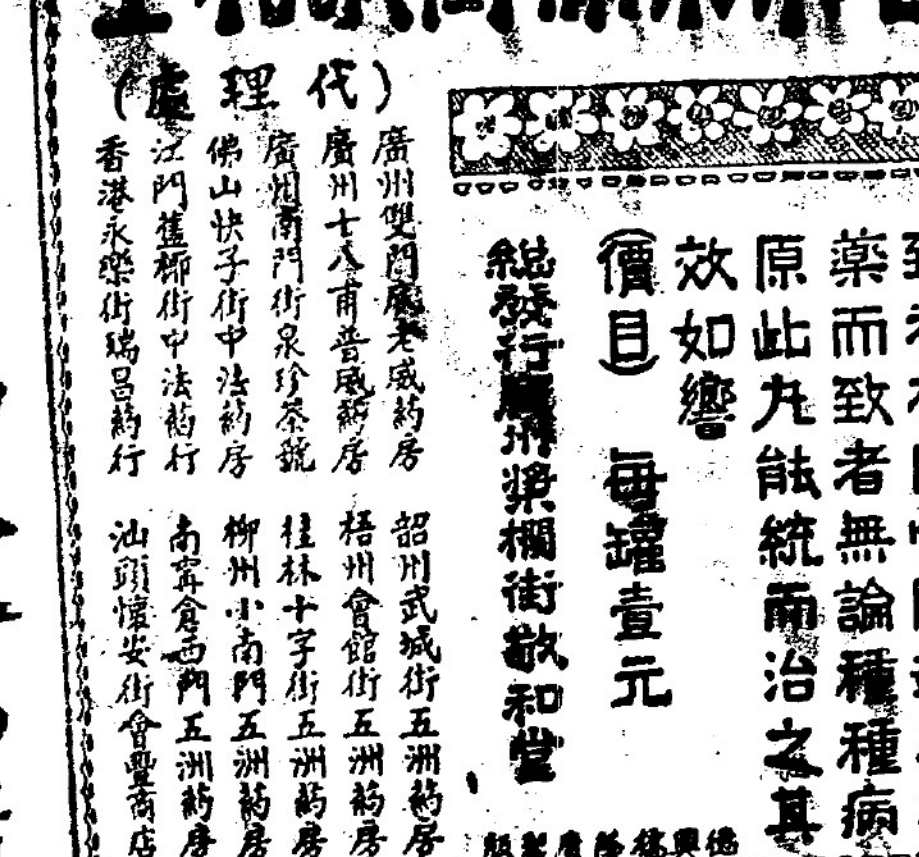 藥而致者無論種種病
原此丸能統而治之其
效如響
（價目） 每罐壹元
總發行廣州槳欄街敬和堂
（代理處）
廣州雙門底老威葯房
廣州十八甫普威葯房
廣州南門街泉珍茶號
佛山快子街中法葯房
江門舊椰街中法葯行
香港永樂街瑞昌葯行
韶州武城街五洲葯房
梧州會館街五洲葯房
桂林十字街五洲葯房
柳州小南門五洲葯房
南寧倉西門五洲葯房
汕頭懷安街會豐商店